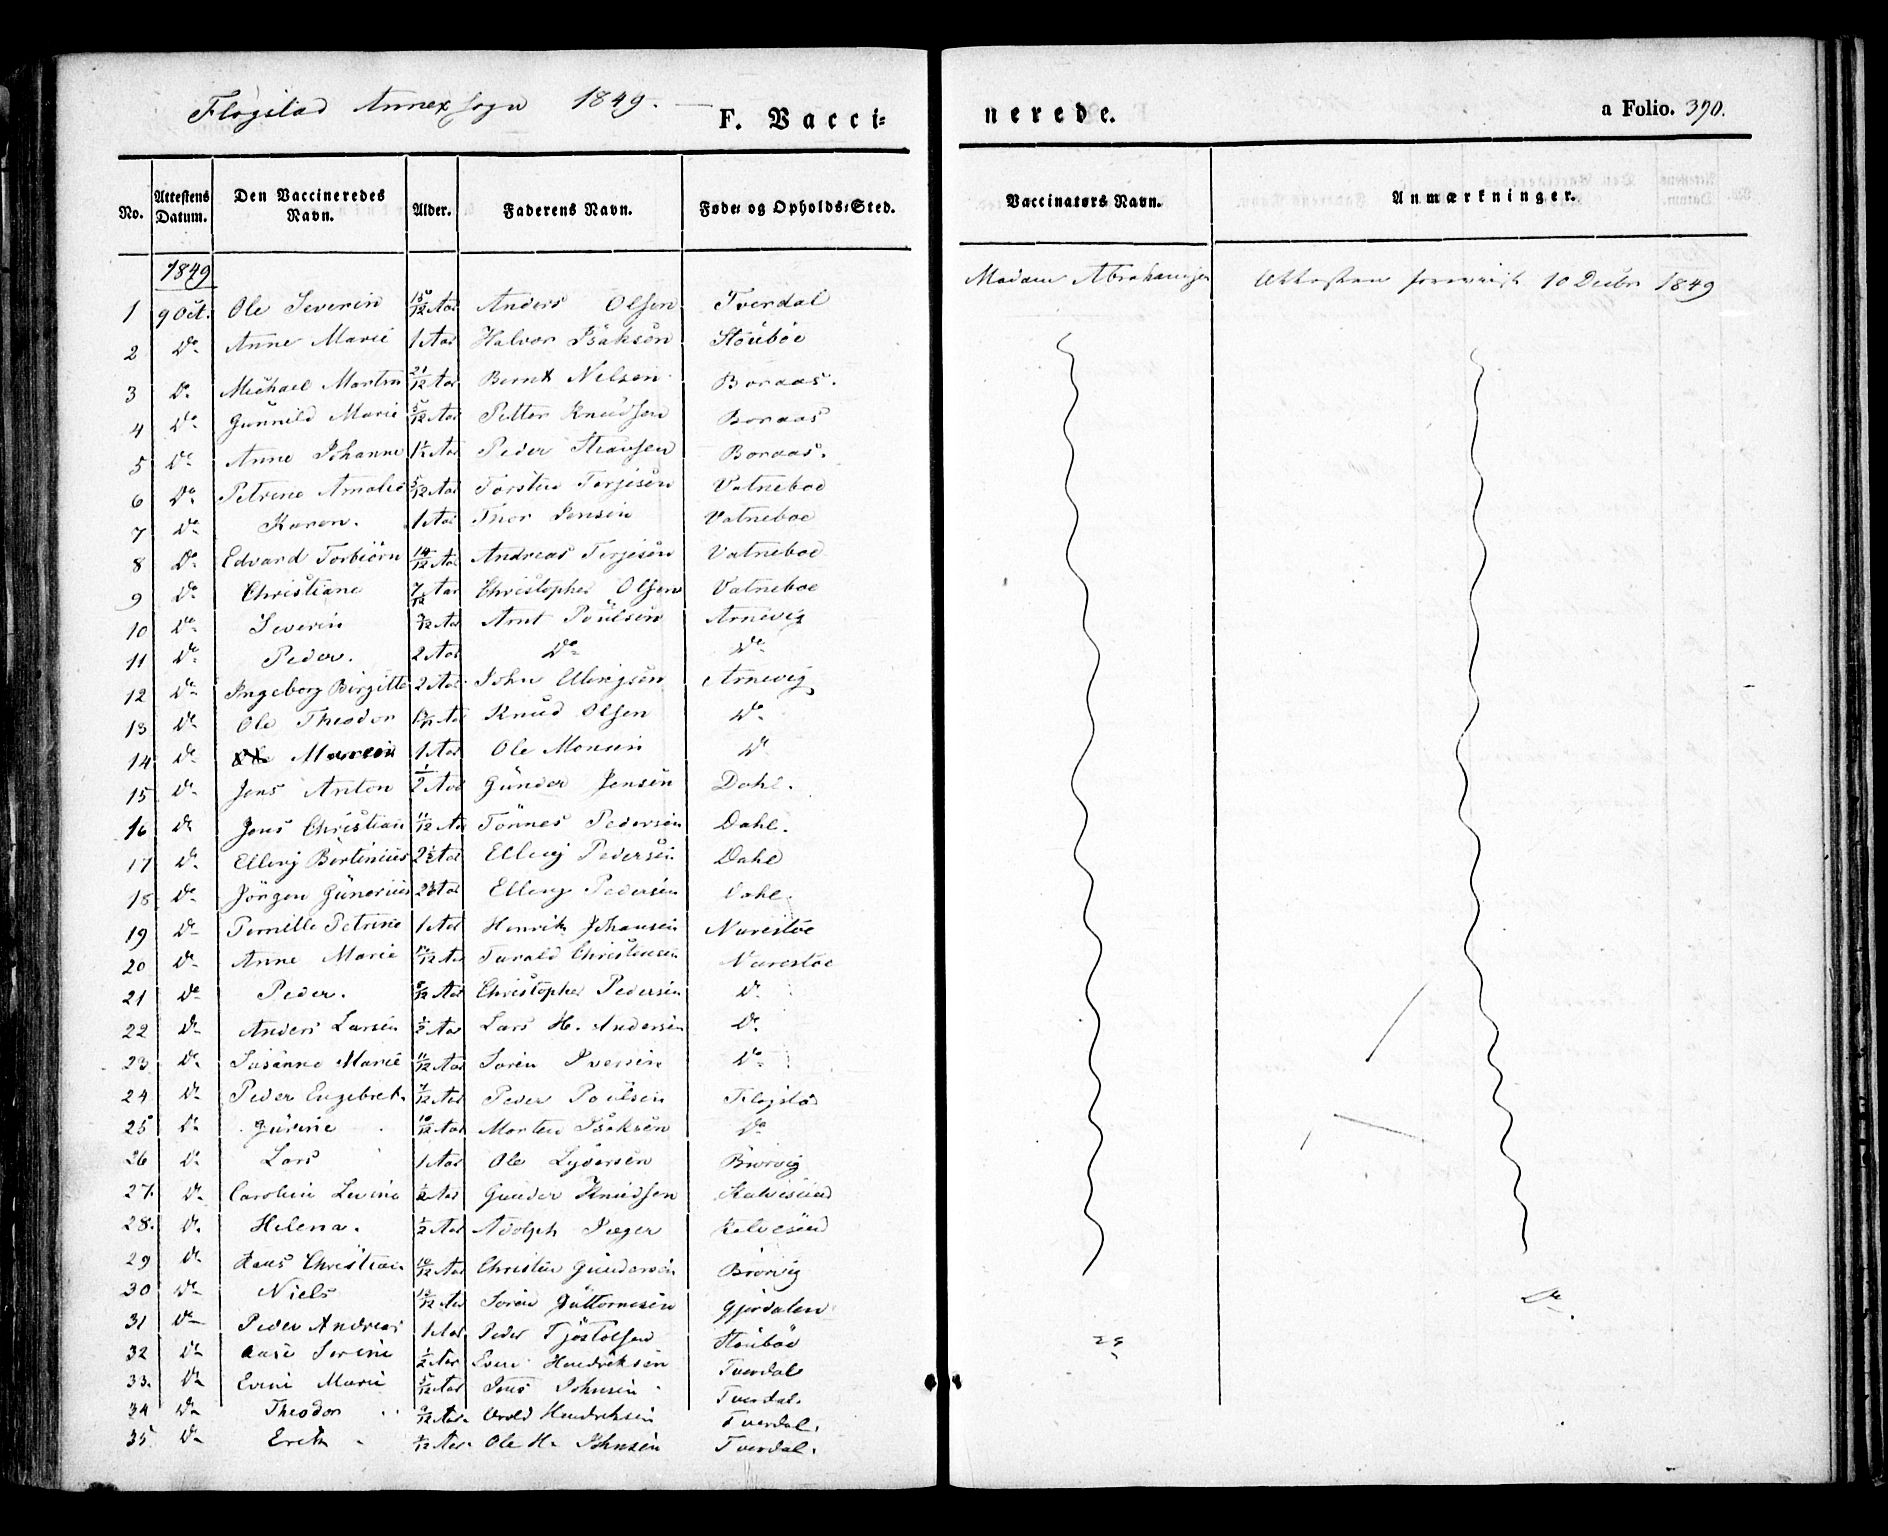 Flogstad Annex sogn 1849.
F. Vacci=
nerede.
a Folio. 390.
No.
Attestens Datum.
Den Vaccineredes Navn.
Alder.
Faderens Navn.
Føde= og Opholds=Sted.
Vaccinators Navn.
Anmærkninger.
1849
1 9 Oct. Ole Severin Aar Anders Olsen Tverdal Madam Abrahamsen 10 Decbr 1849
2 Do Anne Marie 1 Aar Halvor Isaksen Stöüböe
3 Do Michael Martin 21/12 Aar Bernt Nilsen Boraas.
4 Do Gunnild Marie 5/12 Aar Petter Knudsen Boraas
5 Do Anne Johanne 1½ Aar Peder Boraas.
6 Do Petrine Amalie 5/12 Aar Torsten Terjesen Vatneboe
7 Do Karen. 1 Aar Thor Jensen Vatneboe
8 Do Edvard Torbiörn 14/12 Aar Andreas Terjesen Vatneboe
9 Do Christiane 7/12 Aar Christopher Olsen Vatneboe
10 Do Severin Aar Arnt Poülsen Arnevig
11 Do Peder. 2 Aar Do Do
12 Do Ingeborg Birgitte 2 Aar John Ellingsen Arnevig
13 Do Ole Theodor Aar Knud Olsen Do
14 Do Marcin 1 Aar Ole Monsen Do
15 Do Jens Anton ½ Aar Günder Jensen Dahl.
16 Do Jens Christian 11/12 Aar Tönnes Pedersen Dahl.
17 Do Elling Bertinius 2½ Aar Elling Pedersen Dahl
18 Do Jörgen Günerius Aar Elling Pedersen Dahl.
19 Do Pernille Petrine 1 Aar Henrik Johansen Narestöe
20 Do Anne Marie Aar Tarald Christensen Narestöe
21 Do Peder. Aar Christopher Pedersen Do
22 Do Anders Larsen ½ Aar Lars H. Andersen Do
23 Do Susanne Marie 11/12 Aar Sören Iversen Do
24 Do Peder Engebret. 7/12 Aar Peder Poülsen Flogstad
25 Do Gürine 10/12 Aar Morten Isaksen Do
26 Do Lars 1 Aar Ole Lydersen Börvig
27. Do Caroline Levine ½ Aar Gunder Knudsen Kalvesund
28. Do Helena. ½ Aar Adolph Jæger Kalvesund
29 Do Hans Christian 10/12 Aar Christen Gundersen Börvig
30 Do Niels Aar Sören Güttormsen Gjerdalen Do
31 Do Peder Andreas 1 Aar Peder Tjöstolfsen Stöüböe
32 Do Aase Serine ½ Aar Even Hendriksen Tverdal
33. Do Eveni Marie 5/12 Aar Jens Johnsen Tverdal.
34 Do Theodor 9/12 Aar Hendriksen Tverdal.
35 Do Erik Aar Ole H. Johnsen Tverdal.